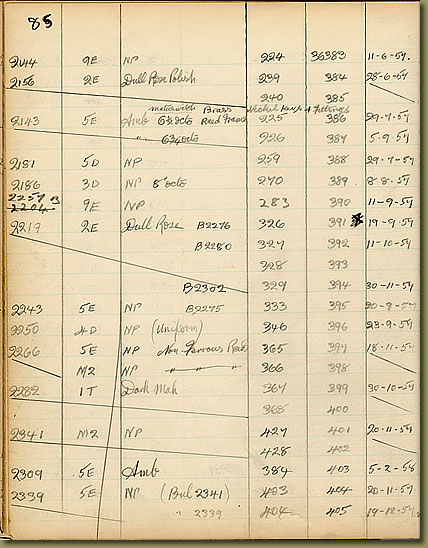 85
2144 9E NP 224 36383 11-6-57.
2156 2E Dull Rose Polish 239 384 28-6-57
240 385
Brass Nickel Keys & Fittings
2143 5E Amb 6¾ octs Reed Frames 225 386 29-7-57
" 6¾ octs 226 387 5-9-57
2181 5D NP 259 388 29-7-57
2186 3D NP 8" octs 270 389 8-8-57
2257 B
2204 9E NP 283 390 11-9-57
2219 2E Dull Rose B2276 326 391 19-9-57
B2280 327 392 11-10-57
328 393
B2302 329 394 30-11-57
2243 5E NP B2275 333 395 20-9-57
2250 4D NP (Uniform) 346 396 23-9-57
2266 5E NP Non Ferrous Reeds 365 397 18-11-57
M2 " " 366 398
2282 1T Dark Mah 367 399 30-10-57
368 400
2341 M2 NP 427 401 20-11-57
428 402
2309 5E Amb 384 403 5-2-58
2339 5E NP (Bul 2341) 403 404 20-11-57
" 2339 404 405 19-12-57